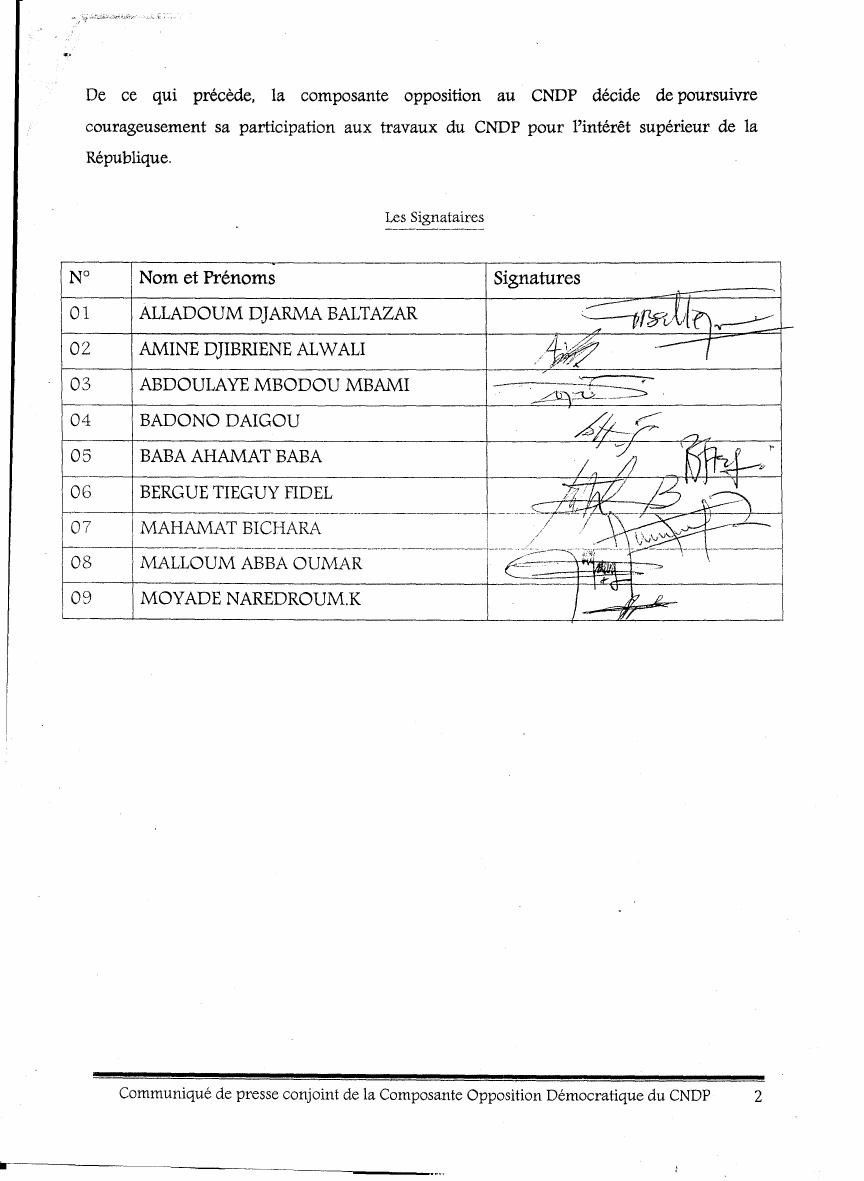 De ce qui précède, la composante opposition au CNDP décide de poursuivre
courageusement sa participation aux travaux du CNDP pour l'intérêt supérieur de la
République.
Les Signataires
N° Nom et Prénoms Signatures
01 ALLADOUM DJARMA BALTAZAR
02 AMINE DJIBRIENE ALWALI
03 ABDOULAYE MBODOU MBAMI
04 BADONO DAIGOU
05 BABA AHAMAT BABA
06 BERGUE TIEGUY FIDEL
07 MAHAMAT BICHARA
08 MALLOUM ABBA OUMAR
09 MOYADE NAREDROUM.K
Communiqué de presse conjoint de la Composante Opposition Démocratique du CNDP 2